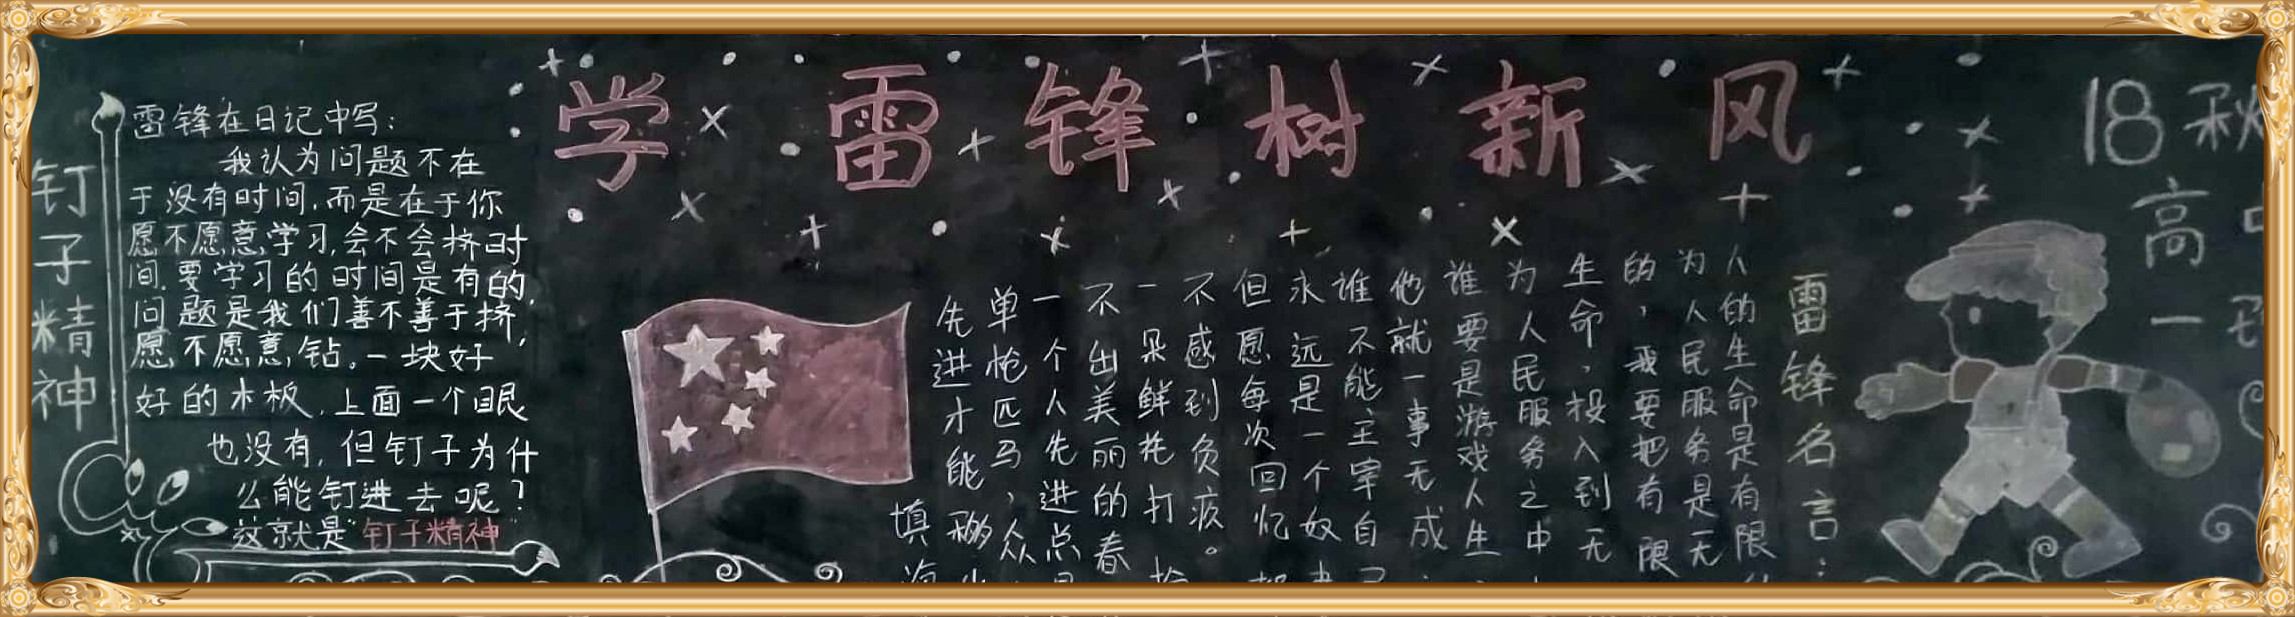 学雷锋树新风
钉子精神
雷锋在日记中写:
我认为问题不在
于没有时间,而是在于你
愿不愿意学习,会不会挤时
间.要学习的时间是有的,
问题是我们善不善于挤,
愿不愿意钻。一块好
好的木板,上面一个眼
也没有,但钉子为什
么能钉进去呢?
这就是"钉子精神"
雷锋名言:
人的生命是有限
为人民服务是无
的,我要把有限
生命,投入到无
为人民服务之中
谁要是游戏人生
他就一事无成
谁不能主宰自
永远是一个奴
但愿每次回忆
不感到负疚。
一朵鲜花打
不出美丽的春
一个人先进总
单枪匹马,众
先进才能移
填
18秋
高
一